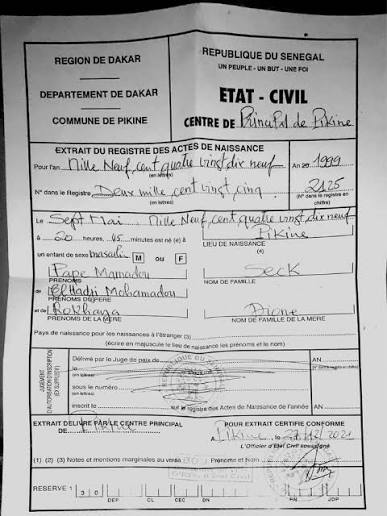 REGION DE DAKAR
DEPARTEMENT DE DAKAR
COMMUNE DE PIKINE
REPUBLIQUE DU SENEGAL
UN PEUPLE - UN BUT - UNE FOI
ETAT - CIVIL
CENTRE DE Principal de Pikine
EXTRAIT DU REGISTRE DES ACTES DE NAISSANCE
Pour l'an Mille Neuf cent quatre vingt dix neuf AN 1999
(en lettres)
N° dans le Registre Deux mille cent vingt cinq 2125
(en lettres) N° dans le registre en chiffre
Le Sept Mai Mille Neuf cent quatre vingt dix neuf
à 20 heures, 45 minutes est né (e) à Pikine
LIEU DE NAISSANCE (4)
un enfant de sexe masculin M ou F
Pape Mamadou Seck
PRENOMS NOM DE FAMILLE
de El Hadri Mohamadou
PRENOMS DU PERE
et de Rokhaya Dione
PRENOMS DE LA MERE NOM DE FAMILLE DE LA MERE
Pays de naissance pour les naissances à l'étranger (3)
(écrire en majuscule le lieu de naissance les prénoms et le nom)
JUGEMENT D'AUTORISATION D'INSCRIPTION
Délivré par le Juge de paix de AN
(en lettres)
sous le numéro
(en lettres)
inscrit le sur le registre des Actes de Naissance de l'année
EXTRAIT DELIVRE PAR LE CENTRE PRINCIPAL
DE Pikine
POUR EXTRAIT CERTIFIE CONFORME
A Pikine, le 2021
L'Officier d'Etat Civil soussigné
(1) (2) (3) Notes et mentions marginales au verso
Prénoms et Nom
RESERVE 1 3 0 DEP CL CEC DN PM AN JUG